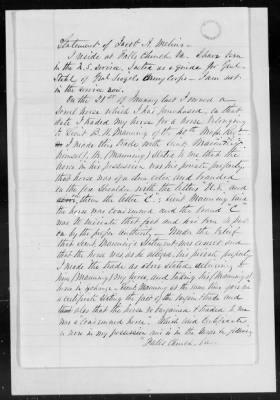 Statement of Jacob A. Melina
I reside at Falls Church Va. I have been
in the U.S. service. Served as a guide for Genl
Stahl of Genl Sigel's Army Corps. I am not
in the service now.
On the 21st of January last I owned a
horse which I had purchased. On that
date I traded my horse for a horse belonging
to Lieut Manning of the
I made this trade with Lieut Manning
himself. He (Manning) stated to me that the
horse in his possession was his private property
that horse was of a color and branded
on the fore shoulder with the letters and
then the letter C. Lieut Manning said
the horse was condemned and the brand C
was to indicate that fact and had been put
on by the proper authority. Under the belief
that Lieut Manning's statement was correct and
that the horse was, as he alleged, his private property
I made the trade as above stated, delivering to
him (Manning) my horse and taking his (Manning's)
horse in exchange. Lieut Manning at the same time gave me
a certificate stating the fact of the trade and
also that the horse he traded to me
was a condemned horse. Which said certificate
is now in my possession and is in the
Falls Church Va.